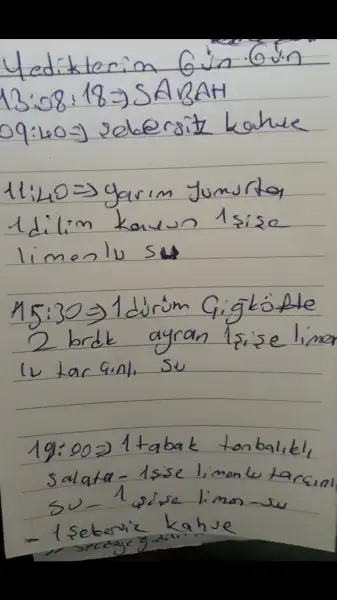 Yediklerim Gün. Gün
13:08:18⇒SABAH
09:40⇒ şekersiz kahve
11:40⇒ yarım yumurta
1 dilim kavun 1şişe
limonlu su
15:30⇒ 1 dürüm Çiğköfte
2 brdk ayran 1şişe limon
lu tarçınlı su
19:00⇒ 1 tabak tonbalıklı
salata - 1şşe limonlu tarçınlı
su - 1 şişe limon-su
- 1 şekersiz kahve